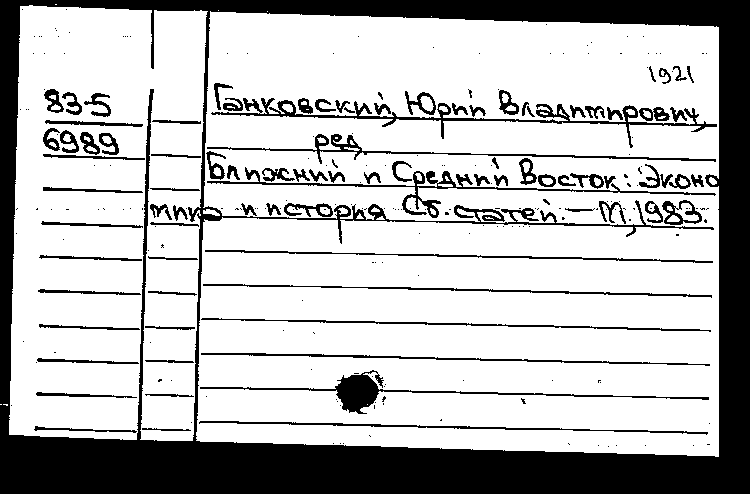 1921
83-5 Ганковский, Юрий Владимирович,
6989 ред.
Ближний и Средний Восток: Эконо
мика и история Сб. статей. — М, 1983.